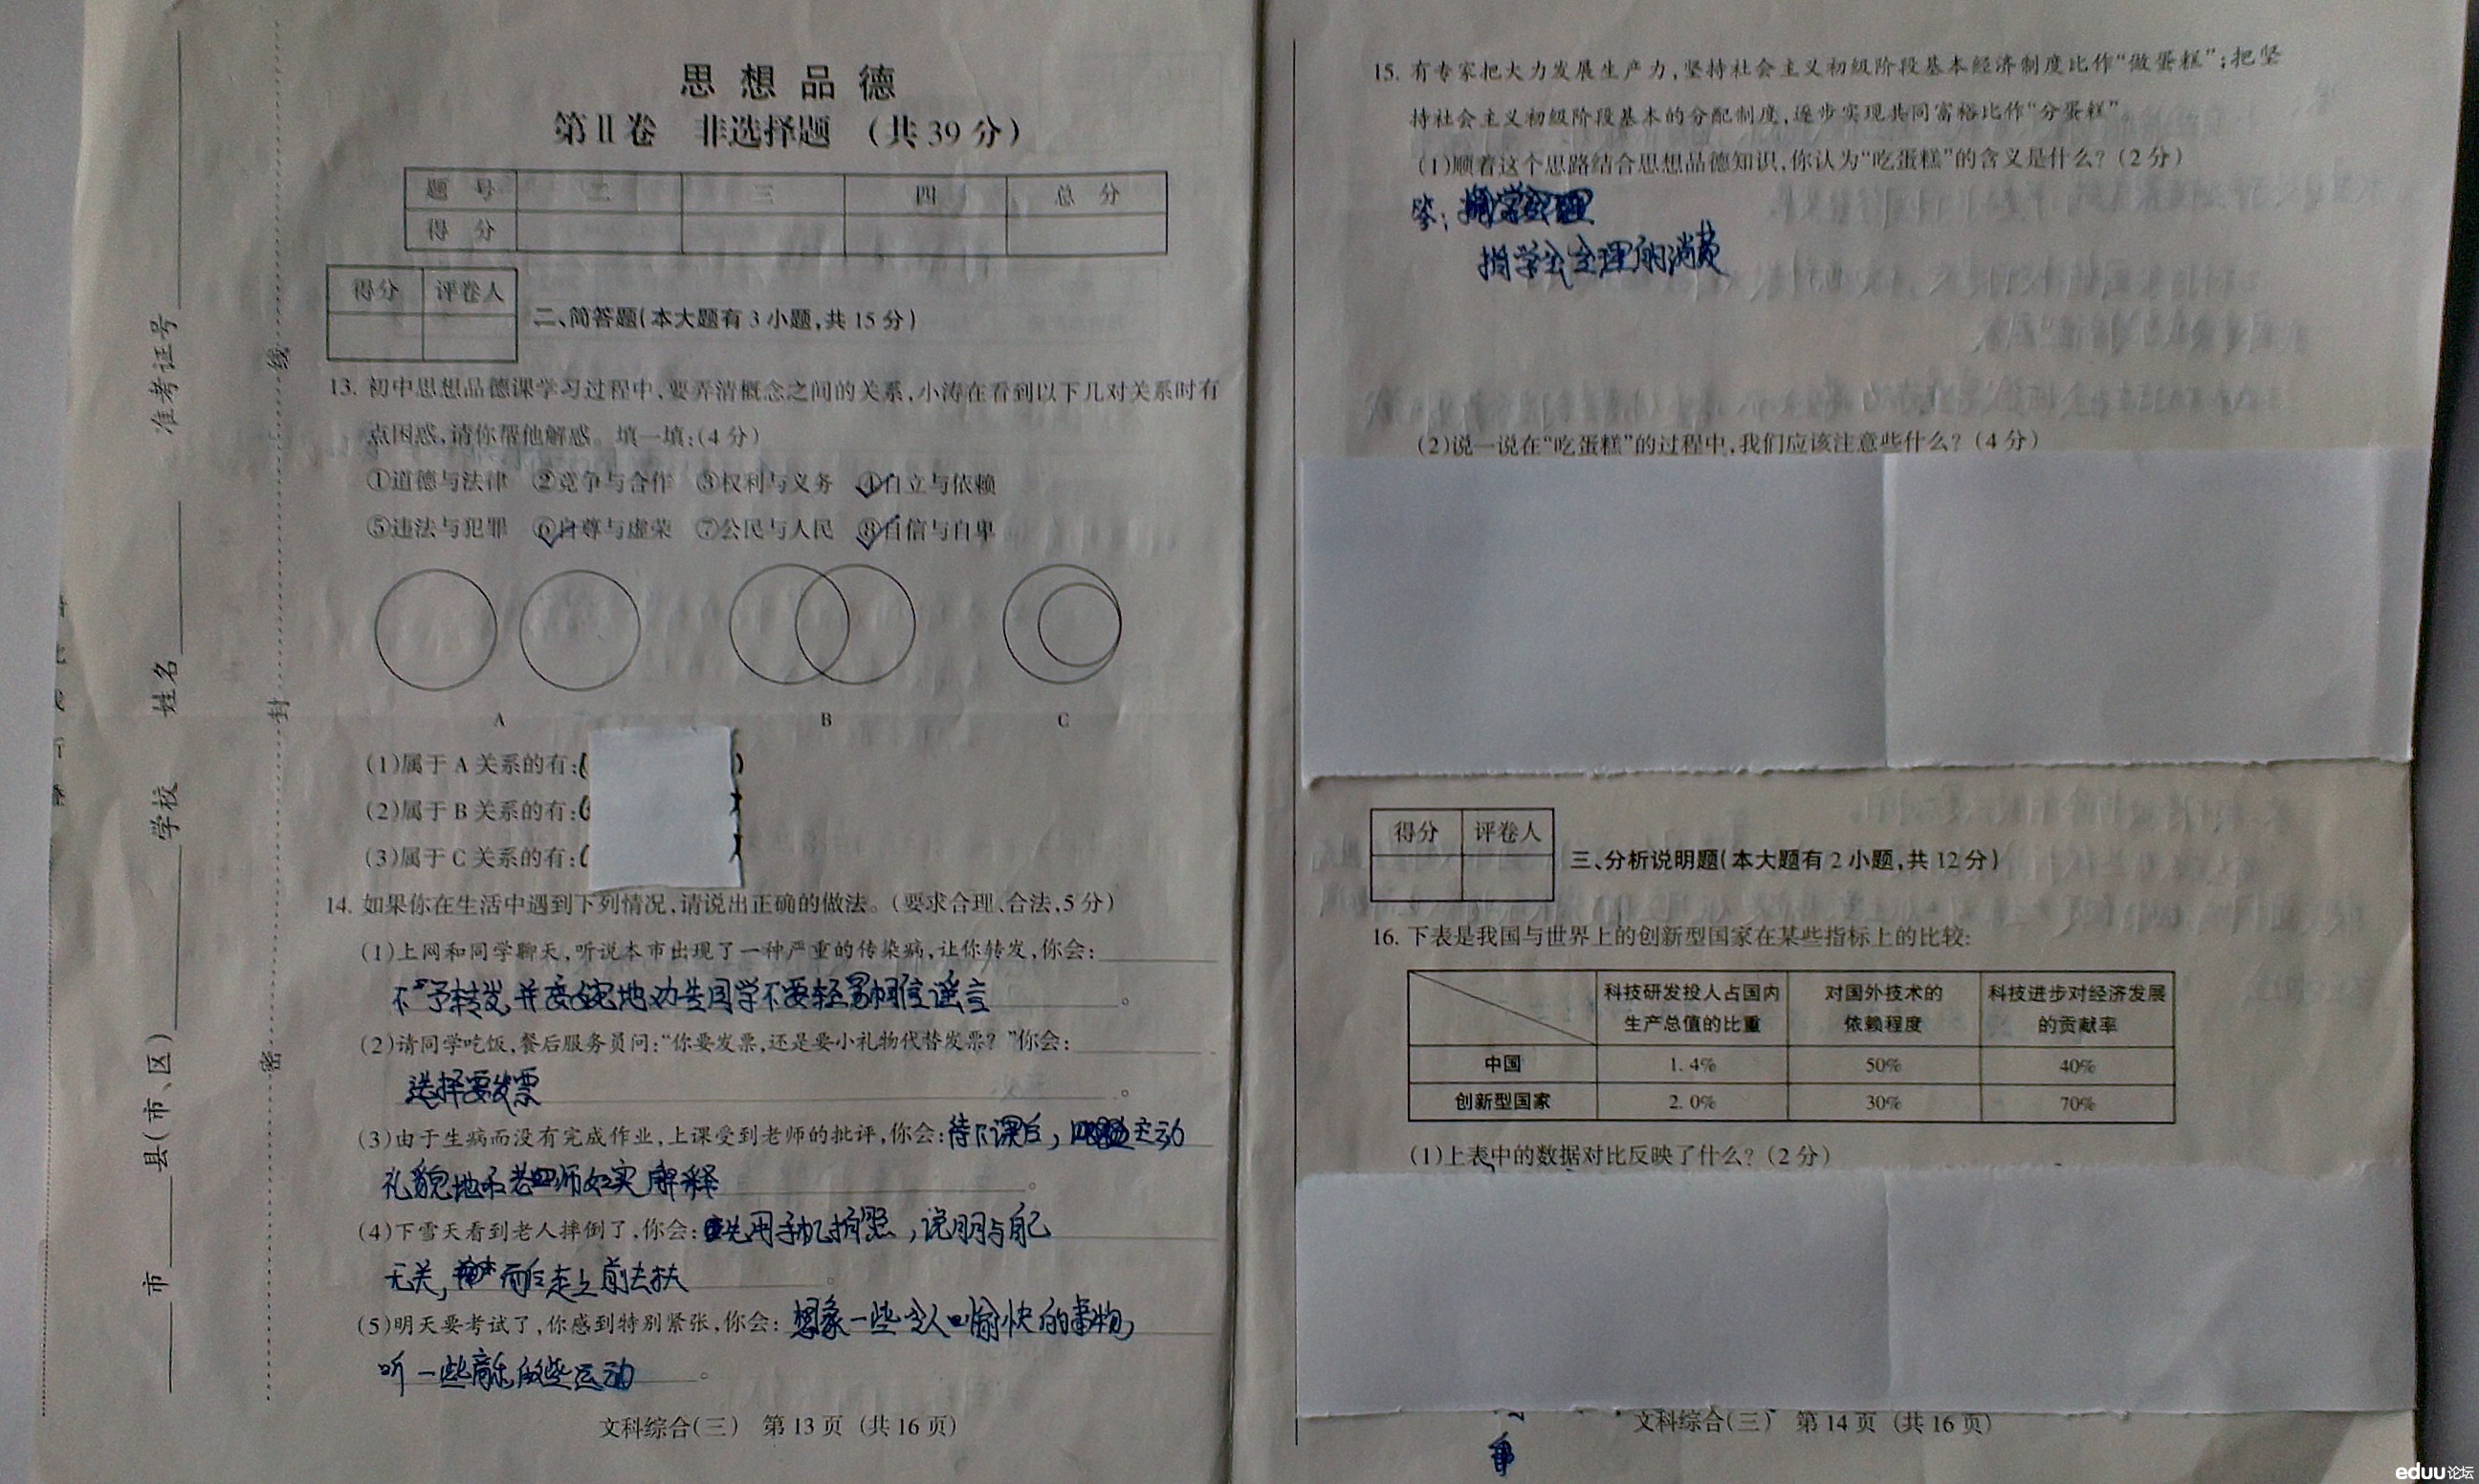 思想品德
第Ⅱ卷 非选择题 (共39分)
题号 二 三 四 总分
得分
得分 评卷人
二、简答题(本大题有3小题,共15分)
13. 初中思想品德课学习过程中,要弄清概念之间的关系,小涛在看到以下几对关系时有
点困惑,请你帮他解惑。填一填:(4分)
①道德与法律 ②竞争与合作 ③权利与义务 ④自立与依赖
⑤违法与犯罪 ⑥自尊与虚荣 ⑦公民与人民 ⑧自信与自卑
A B C
(1)属于A关系的有:( )
(2)属于B关系的有:( )
(3)属于C关系的有:( )
14. 如果你在生活中遇到下列情况,请说出正确的做法。(要求合理、合法,5分)
(1)上网和同学聊天,听说本市出现了一种严重的传染病,让你转发,你会:
不予转发,并委婉地劝告同学不要轻易相信谣言。
(2)请同学吃饭,餐后服务员问:“你要发票,还是要小礼物代替发票?”你会:
选择要发票。
(3)由于生病而没有完成作业,上课受到老师的批评,你会:待下课后,主动
礼貌地和老师如实解释。
(4)下雪天看到老人摔倒了,你会:先用手机拍照,说明与自己
无关,而后走上前去扶。
(5)明天要考试了,你感到特别紧张,你会:想象一些令人愉快的事物,
听一些音乐,做些运动。
文科综合(三) 第13页 (共16页)
准考证号
姓名
学校
县(市、区)
市
线
封
密
15. 有专家把大力发展生产力,坚持社会主义初级阶段基本经济制度比作“做蛋糕”;把坚
持社会主义初级阶段基本的分配制度,逐步实现共同富裕比作“分蛋糕”。
(1)顺着这个思路结合思想品德知识,你认为“吃蛋糕”的含义是什么?(2分)
答:
指学会合理的消费
(2)说一说在“吃蛋糕”的过程中,我们应该注意些什么?(4分)
得分 评卷人
三、分析说明题(本大题有2小题,共12分)
16. 下表是我国与世界上的创新型国家在某些指标上的比较:
科技研发投入占国内生产总值的比重 对国外技术的依赖程度 科技进步对经济发展的贡献率
中国 1.4% 50% 40%
创新型国家 2.0% 30% 70%
(1)上表中的数据对比反映了什么?(2分)
文科综合(三) 第14页 (共16页)
eduu论坛